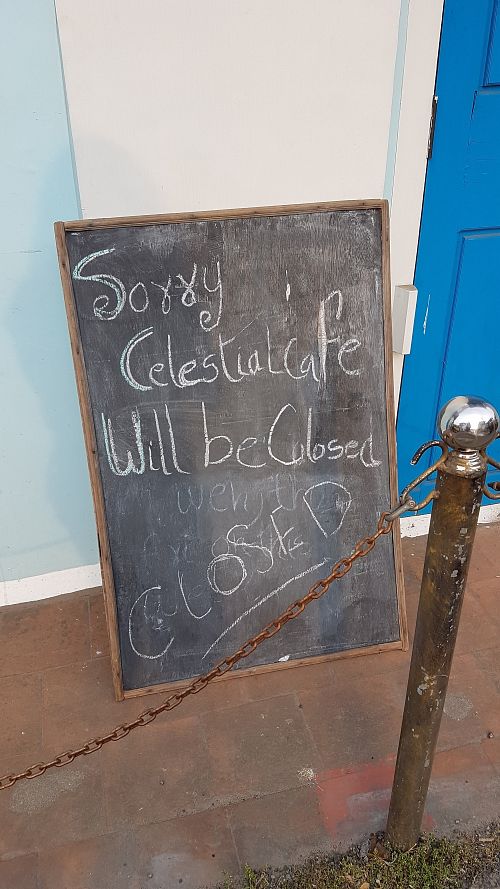 Sorry
Celestial Cafe
Will be Closed
CLOSED